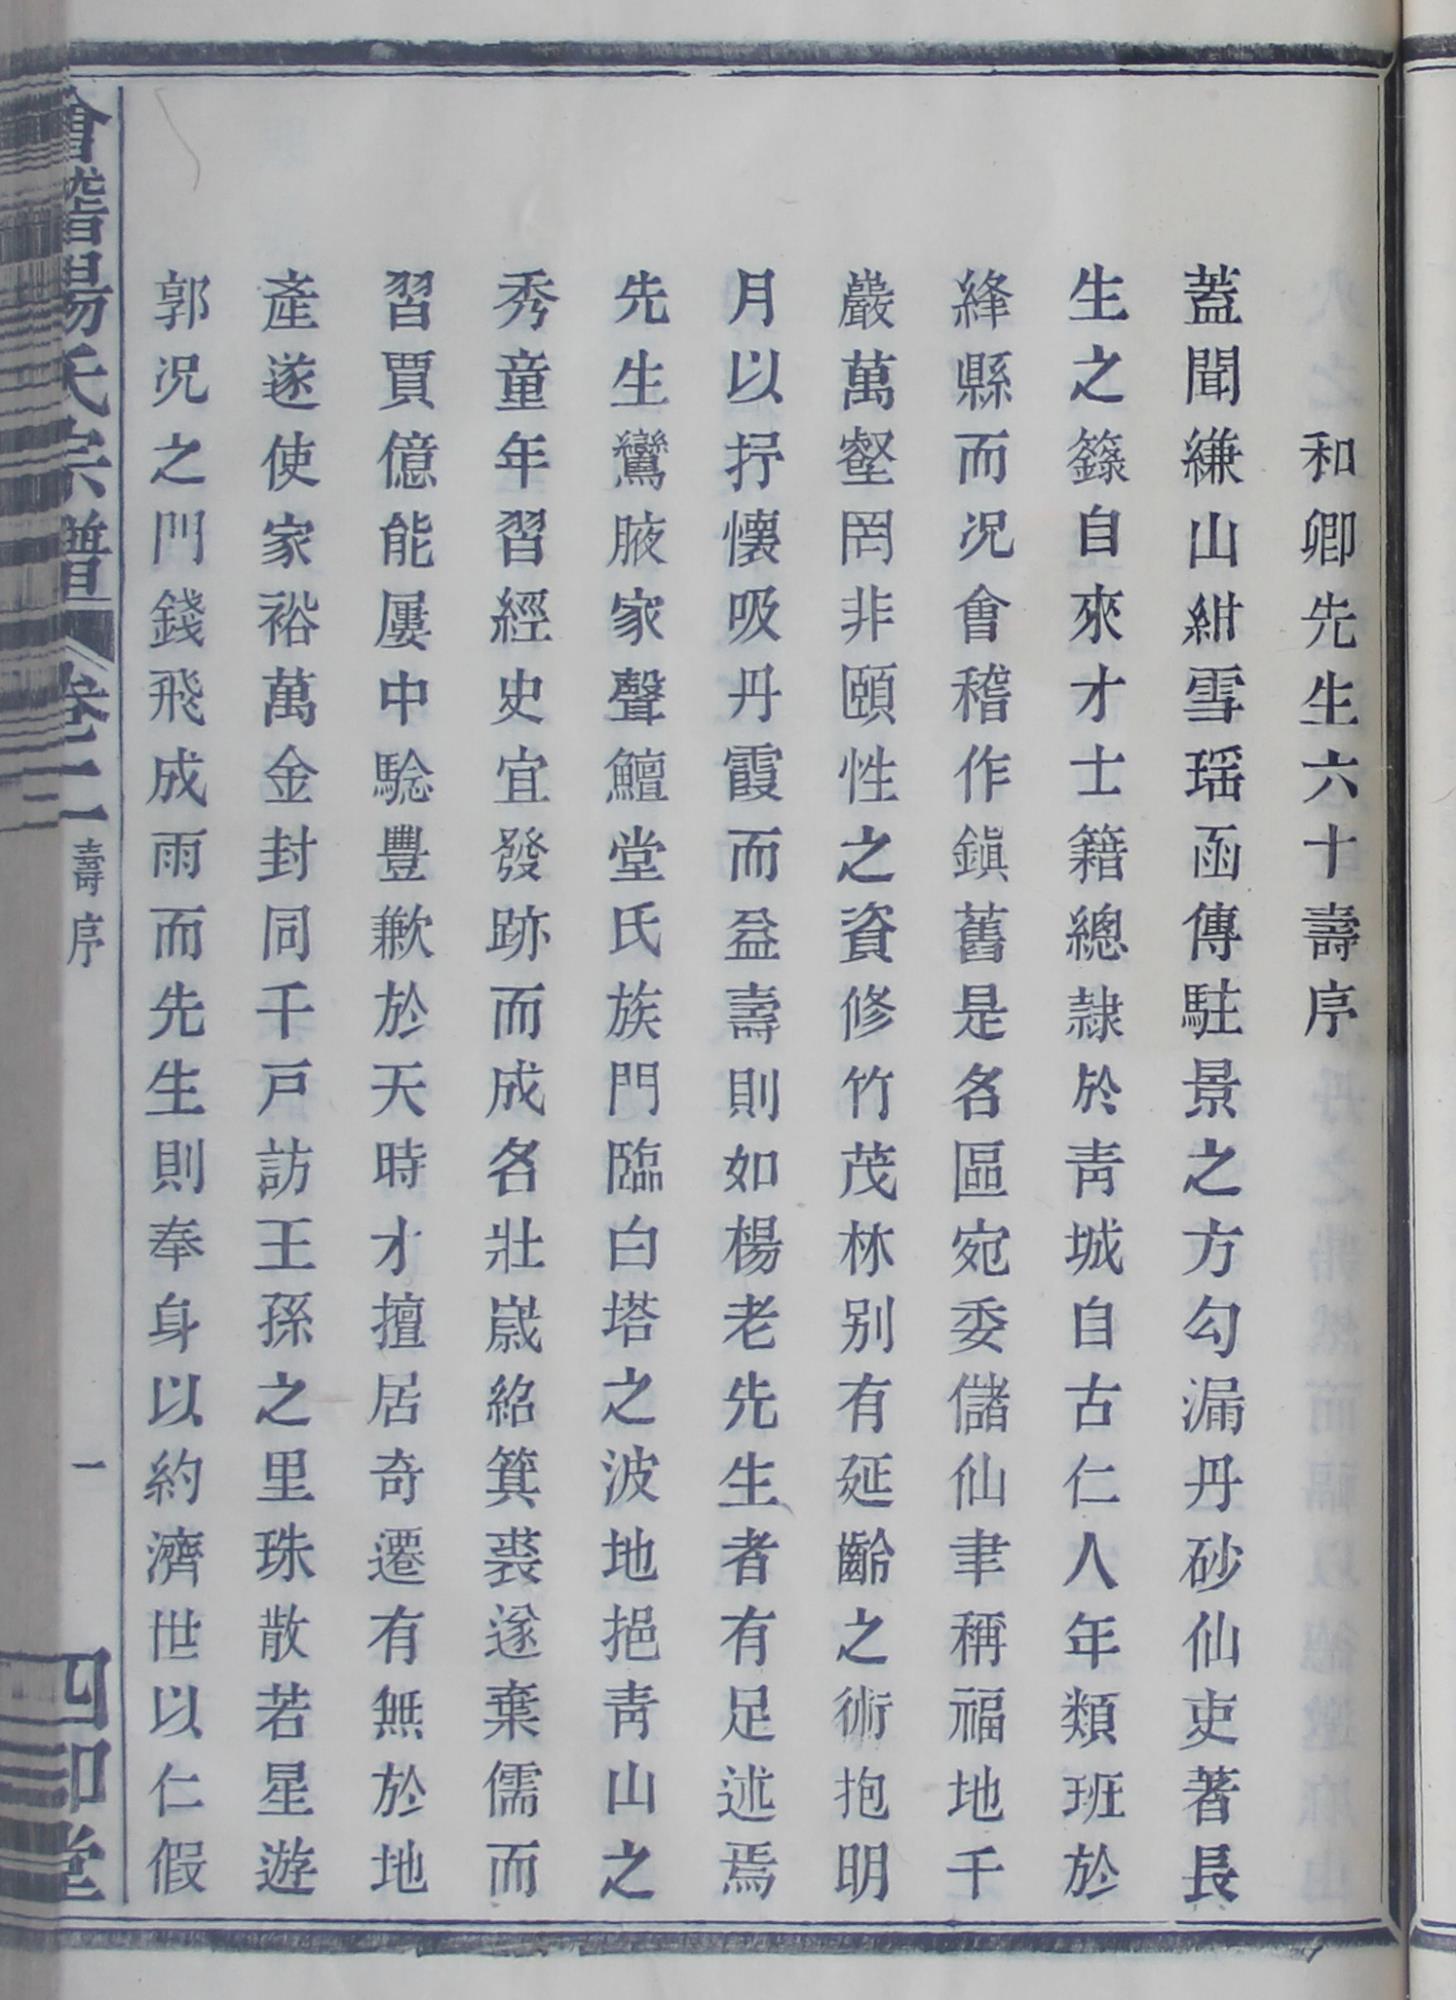 和卿先生六十壽序
蓋聞縑山紺雪瑶函傳駐景之方勾漏丹砂仙吏著長
生之籙自來才士籍總隷於靑城自古仁人年類班於
絳縣而況會稽作鎭舊是名區宛委儲仙聿稱福地千
巖萬壑罔非頤性之資修竹茂林别有延齡之術抱明
月以抒懷吸丹霞而益壽則如楊老先生者有足述焉
先生鸞腋家聲鱣堂氏族門臨白塔之波地挹靑山之
秀童年習經史宜發跡而成名壯嵗紹箕裘遂棄儒而
習賈億能屢中騐豐歉於天時才擅居奇遷有無於地
產遂使家裕萬金封同千戸訪王孫之里珠散若星遊
郭況之門錢飛成雨而先生則奉身以約濟世以仁假
會稽楊氏宗譜
卷二
壽序
一
四知堂